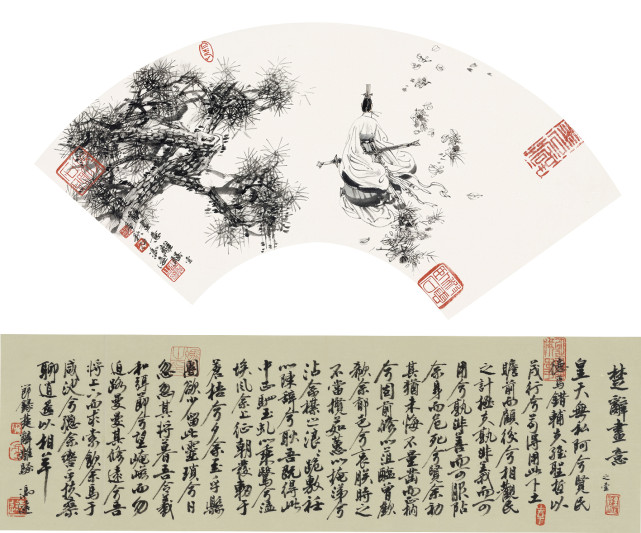 楚辭畫意
之壹
皇天無私阿兮覽民
德焉錯輔夫維聖哲以
茂行兮苟得用此下土
瞻前而顧後兮相觀民
之計極夫孰非義而可
用兮孰非善而可服阽
余身而危死兮覽余初
其猶未悔不量鑿而枘
兮固前脩以菹醢曾歔
欷余鬱邑兮哀朕時之
不當攬茹蕙以掩涕兮
沾余襟之浪浪跪敷衽
以陳辭兮耿吾既得此
中正駟玉虬以乘鷖兮溘
埃風余上征朝發軔于
蒼梧兮夕余至乎縣
圃欲少留此靈瑣兮日
忽忽其將暮吾令羲
和弭節兮望崦嵫而勿
迫路曼曼其修遠兮吾
將上下而求索飲余馬于
咸池兮總余轡乎扶桑
聊逍遙以相羊
節錄楚辭離騷